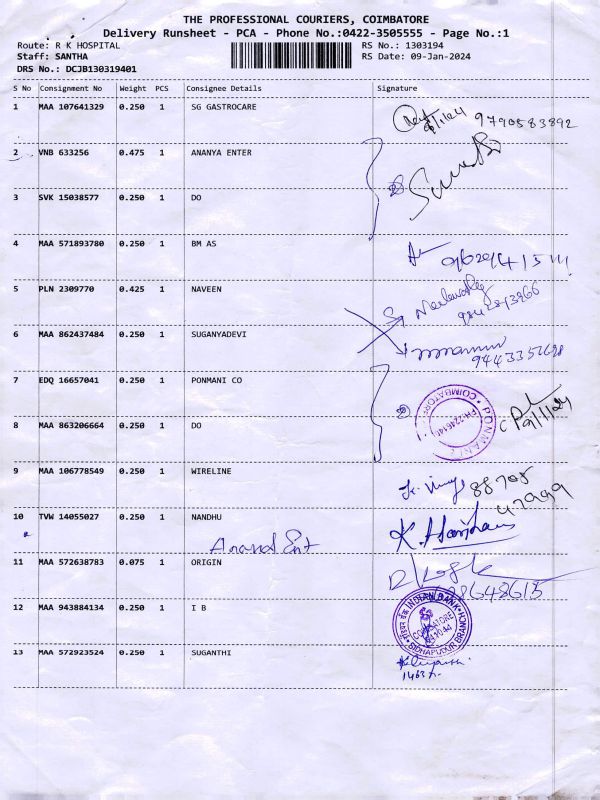 THE PROFESSIONAL COURIERS, COIMBATORE
Delivery Runsheet - PCA - Phone No.:0422-3505555 - Page No.:1
Route: R K HOSPITAL RS No.: 1303194
Staff: SANTHA RS Date: 09-Jan-2024
DRS No.: DCJB130319401
S No Consignment No Weight PCS Consignee Details Signature
1 MAA 107641329 0.250 1 SG GASTROCARE
9790583892
2 VNB 633256 0.475 1 ANANYA ENTER
3 SVK 15038577 0.250 1 DO
4 MAA 571893780 0.250 1 BM AS
5 PLN 2309770 0.425 1 NAVEEN
6 MAA 862437484 0.250 1 SUGANYADEVI
7 EDQ 16657041 0.250 1 PONMANI CO
8 MAA 863206664 0.250 1 DO
9 MAA 106778549 0.250 1 WIRELINE
88708
47999
10 TVW 14055027 0.250 1 NANDHU
Anand Ent
11 MAA 572638783 0.075 1 ORIGIN
12 MAA 943884134 0.250 1 I B
INDIAN BANK
COIMBATORE
SIDHAPUDUR BRANCH
13 MAA 572923524 0.250 1 SUGANTHI